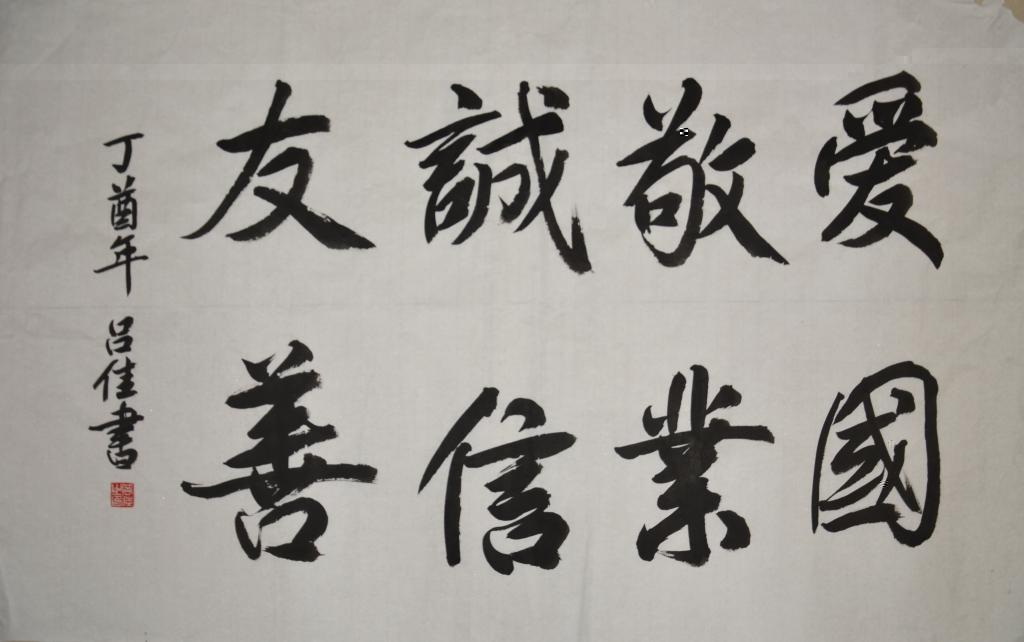 爱國
敬業
誠信
友善
丁酉年 吕佳書